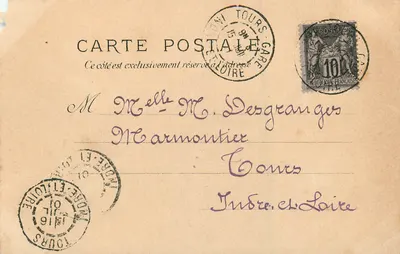 TOURS-GARE
ET-LOIRE
CARTE POSTALE
Ce côté est exclusivement réservé à l'adresse
10
M Melle M. Desgranges
Marmoutier
Tours
Indre et Loire
INDRE-ET-LOIRE
16
TOURS